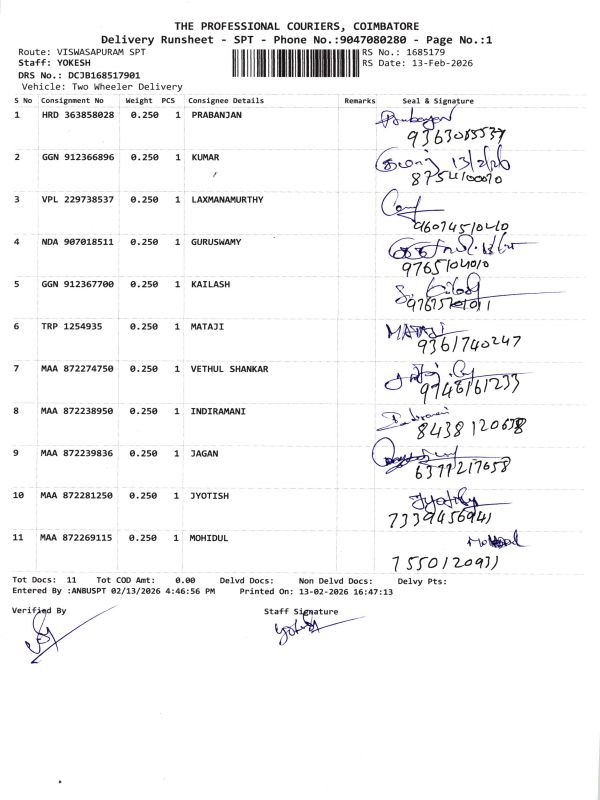 THE PROFESSIONAL COURIERS, COIMBATORE
Delivery Runsheet - SPT - Phone No.:9047080280 - Page No.:1
Route: VISWASAPURAM SPT
RS No.: 1685179
Staff: YOKESH
RS Date: 13-Feb-2026
DRS No.: DCJB168517901
Vehicle: Two Wheeler Delivery
S No Consignment No Weight PCS Consignee Details Remarks Seal & Signature
1 HRD 363858028 0.250 1 PRABANJAN
2 GGN 912366896 0.250 1 KUMAR 13/2/26
3 VPL 229738537 0.250 1 LAXMANAMURTHY
4 NDA 907018511 0.250 1 GURUSWAMY
5 GGN 912367700 0.250 1 KAILASH
6 TRP 1254935 0.250 1 MATAJI MATAJI
9361740247
7 MAA 872274750 0.250 1 VETHUL SHANKAR
9746161233
8 MAA 872238950 0.250 1 INDIRAMANI
9 MAA 872239836 0.250 1 JAGAN
6377217658
10 MAA 872281250 0.250 1 JYOTISH
7339456941
11 MAA 872269115 0.250 1 MOHIDUL
7550120931
Tot Docs: 11 Tot COD Amt: 0.00 Delvd Docs: Non Delvd Docs: Delvy Pts:
Entered By :ANBUSPT 02/13/2026 4:46:56 PM Printed On: 13-02-2026 16:47:13
Verified By Staff Signature